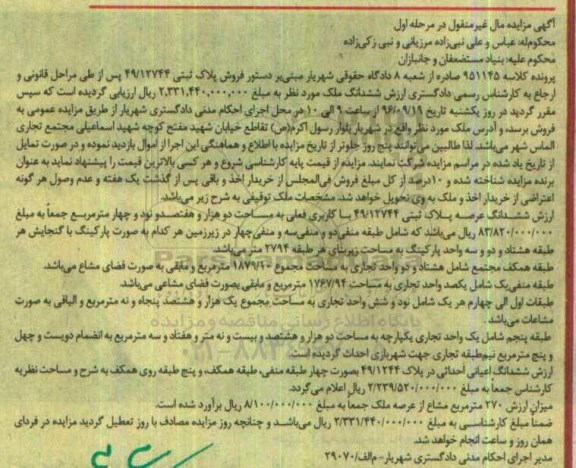 آگهی مزایده مال غیرمنقول در مرحله اول
محکوم‌له: عباس و علی نبی‌زاده مرزبانی و نبی زکی‌زاده
محکوم علیه: بنیاد مستضعفان و جانبازان
پرونده کلاسه ۹۵۱۱۴۵ صادره از شعبه ۸ دادگاه حقوقی شهریار مبنی‌بر دستور فروش پلاک ثبتی ۴۹/۱۲۷۴۴ پس از طی مراحل قانونی و
ارجاع به کارشناس رسمی دادگستری ارزش ششدانگ ملک مورد نظر به مبلغ ۲,۳۳۱,۴۴۰,۰۰۰,۰۰۰ ریال ارزیابی گردیده است که سپس
مقرر گردید در روز یکشنبه تاریخ ۹۶/۰۹/۱۹ از ساعت ۹ الی ۱۰ در محل اجرای احکام مدنی دادگستری شهریار از طریق مزایده عمومی به
فروش برسد، و آدرس ملک مورد نظر واقع در شهریار بلوار رسول اکرم(ص) تقاطع خیابان شهید مفتح کوچه شهید اسماعیلی مجتمع تجاری
الماس شهر می‌باشد. لذا طالبین می‌توانند پنج روز جلوتر از تاریخ مزایده با اطلاع و هماهنگی این اجرا از اموال بازدید نموده و در صورت تمایل
از تاریخ یاد شده در مراسم مزایده شرکت نمایند. مزایده از قیمت پایه کارشناسی شروع و هر کسی بالاترین قیمت را پیشنهاد نماید به عنوان
برنده مزایده شناخته شده و ۱۰درصد از کل مبلغ فروش فی‌المجلس از خریدار اخذ و باقی پس از گذشت یک هفته و عدم وصول هر گونه
اعتراضی از خریدار اخذ و ملک به وی تحویل خواهد شد. مشخصات ملک توقیفی به شرح زیر می‌باشد.
ارزش ششدانگ عرصه پلاک ثبتی ۴۹/۱۲۷۴۴ با کاربری فعلی به مساحت دو هزار و هفتصدو نود و چهار مترمربع جمعاً به مبلغ
۸۳/۸۲۰/۰۰۰/۰۰۰ ریال می‌باشد که شامل طبقه منفی‌دو و منفی‌سه و منفی‌چهار در زیرزمین هر کدام به صورت پارکینگ با گنجایش هر
طبقه هشتاد و دو و سه واحد پارکینگ به مساحت زیربنای هر طبقه ۲۷۹۴ متر می‌باشد.
طبقه همکف مجتمع شامل هشتاد و دو واحد تجاری به مساحت مجموع ۱۸۷۹/۱۰ مترمربع و مابقی به صورت فضای مشاع می‌باشد.
طبقه منفی‌یک شامل یکصد واحد تجاری به مساحت ۱۷۶۷/۹۴ مترمربع و مابقی بصورت فضای مشاعی می‌باشد.
طبقات اول الی چهارم هر یک شامل نود و شش واحد تجاری به مساحت مجموع یک هزار و هشتصد پنجاه و نه مترمربع و الباقی به صورت
مشاعات می‌باشد.
طبقه پنجم شامل یک واحد تجاری یکپارچه به مساحت دو هزار و هشتصد و بیست و نه متر و هفتاد و سه مترمربع به انضمام دویست و چهل
و پنج مترمربع نیم‌طبقه تجاری جهت شهربازی احداث گردیده است
ارزش ششدانگ اعیانی احداثی در پلاک ۴۹/۱۲۴۴ بصورت چهار طبقه منفی، طبقه همکف، و پنج طبقه روی همکف به شرح و مساحت نظریه
کارشناس جمعاً به مبلغ ۲/۲۳۹/۵۲۰/۰۰۰/۰۰۰ ریال اعلام می‌گردد.
میزان ارزش ۲۷۰ مترمربع مشاع از عرصه ملک جمعاً به مبلغ ۸/۱۰۰/۰۰۰/۰۰۰ ریال برآورد شده است.
ضمنا مبلغ کارشناسی به مبلغ ۲/۳۳۱/۴۴۰/۰۰۰/۰۰۰ ریال می‌باشد و چنانچه روز مزایده مصادف با روز تعطیل گردید مزایده در فردای
همان روز و ساعت انجام خواهد شد.
مدیر اجرای احکام مدنی دادگستری شهریار- م‌الف/۲۹۰۷۰